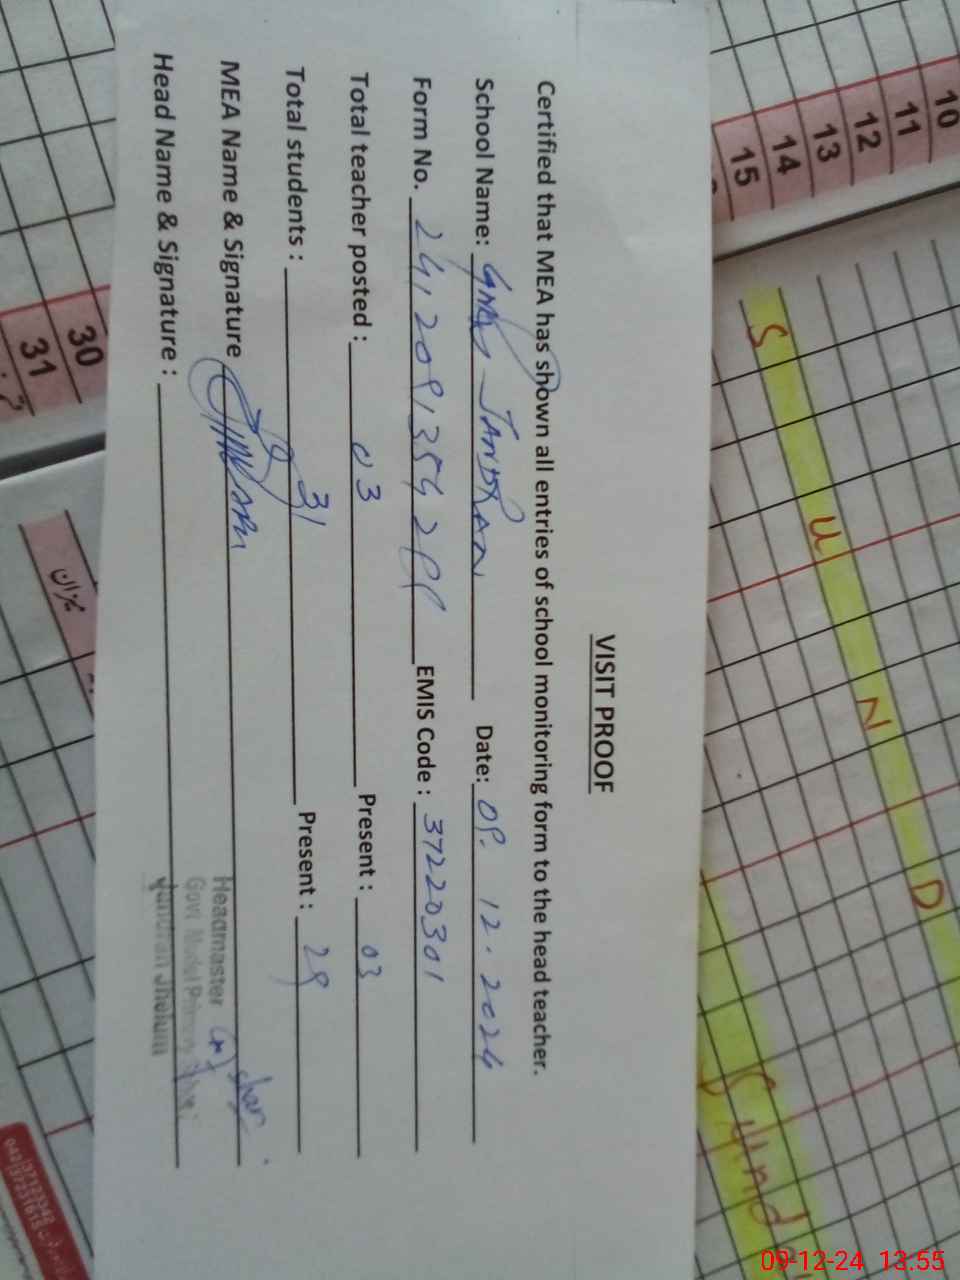 VISIT PROOF
Certified that MEA has shown all entries of school monitoring form to the head teacher.
School Name: GMPS JANDRAN Date: 09. 12. 2024
Form No. 2412091354299 EMIS Code : 37220301
Total teacher posted : 03 Present : 03
Total students : 31 Present : 29
MEA Name & Signature
Head Name & Signature :
Headmaster
Govt Model Primary
Jandran Jhelum
10
11
12
13
14
15
30
31
میزان
S U N D
Sund
09-12-24 13.55